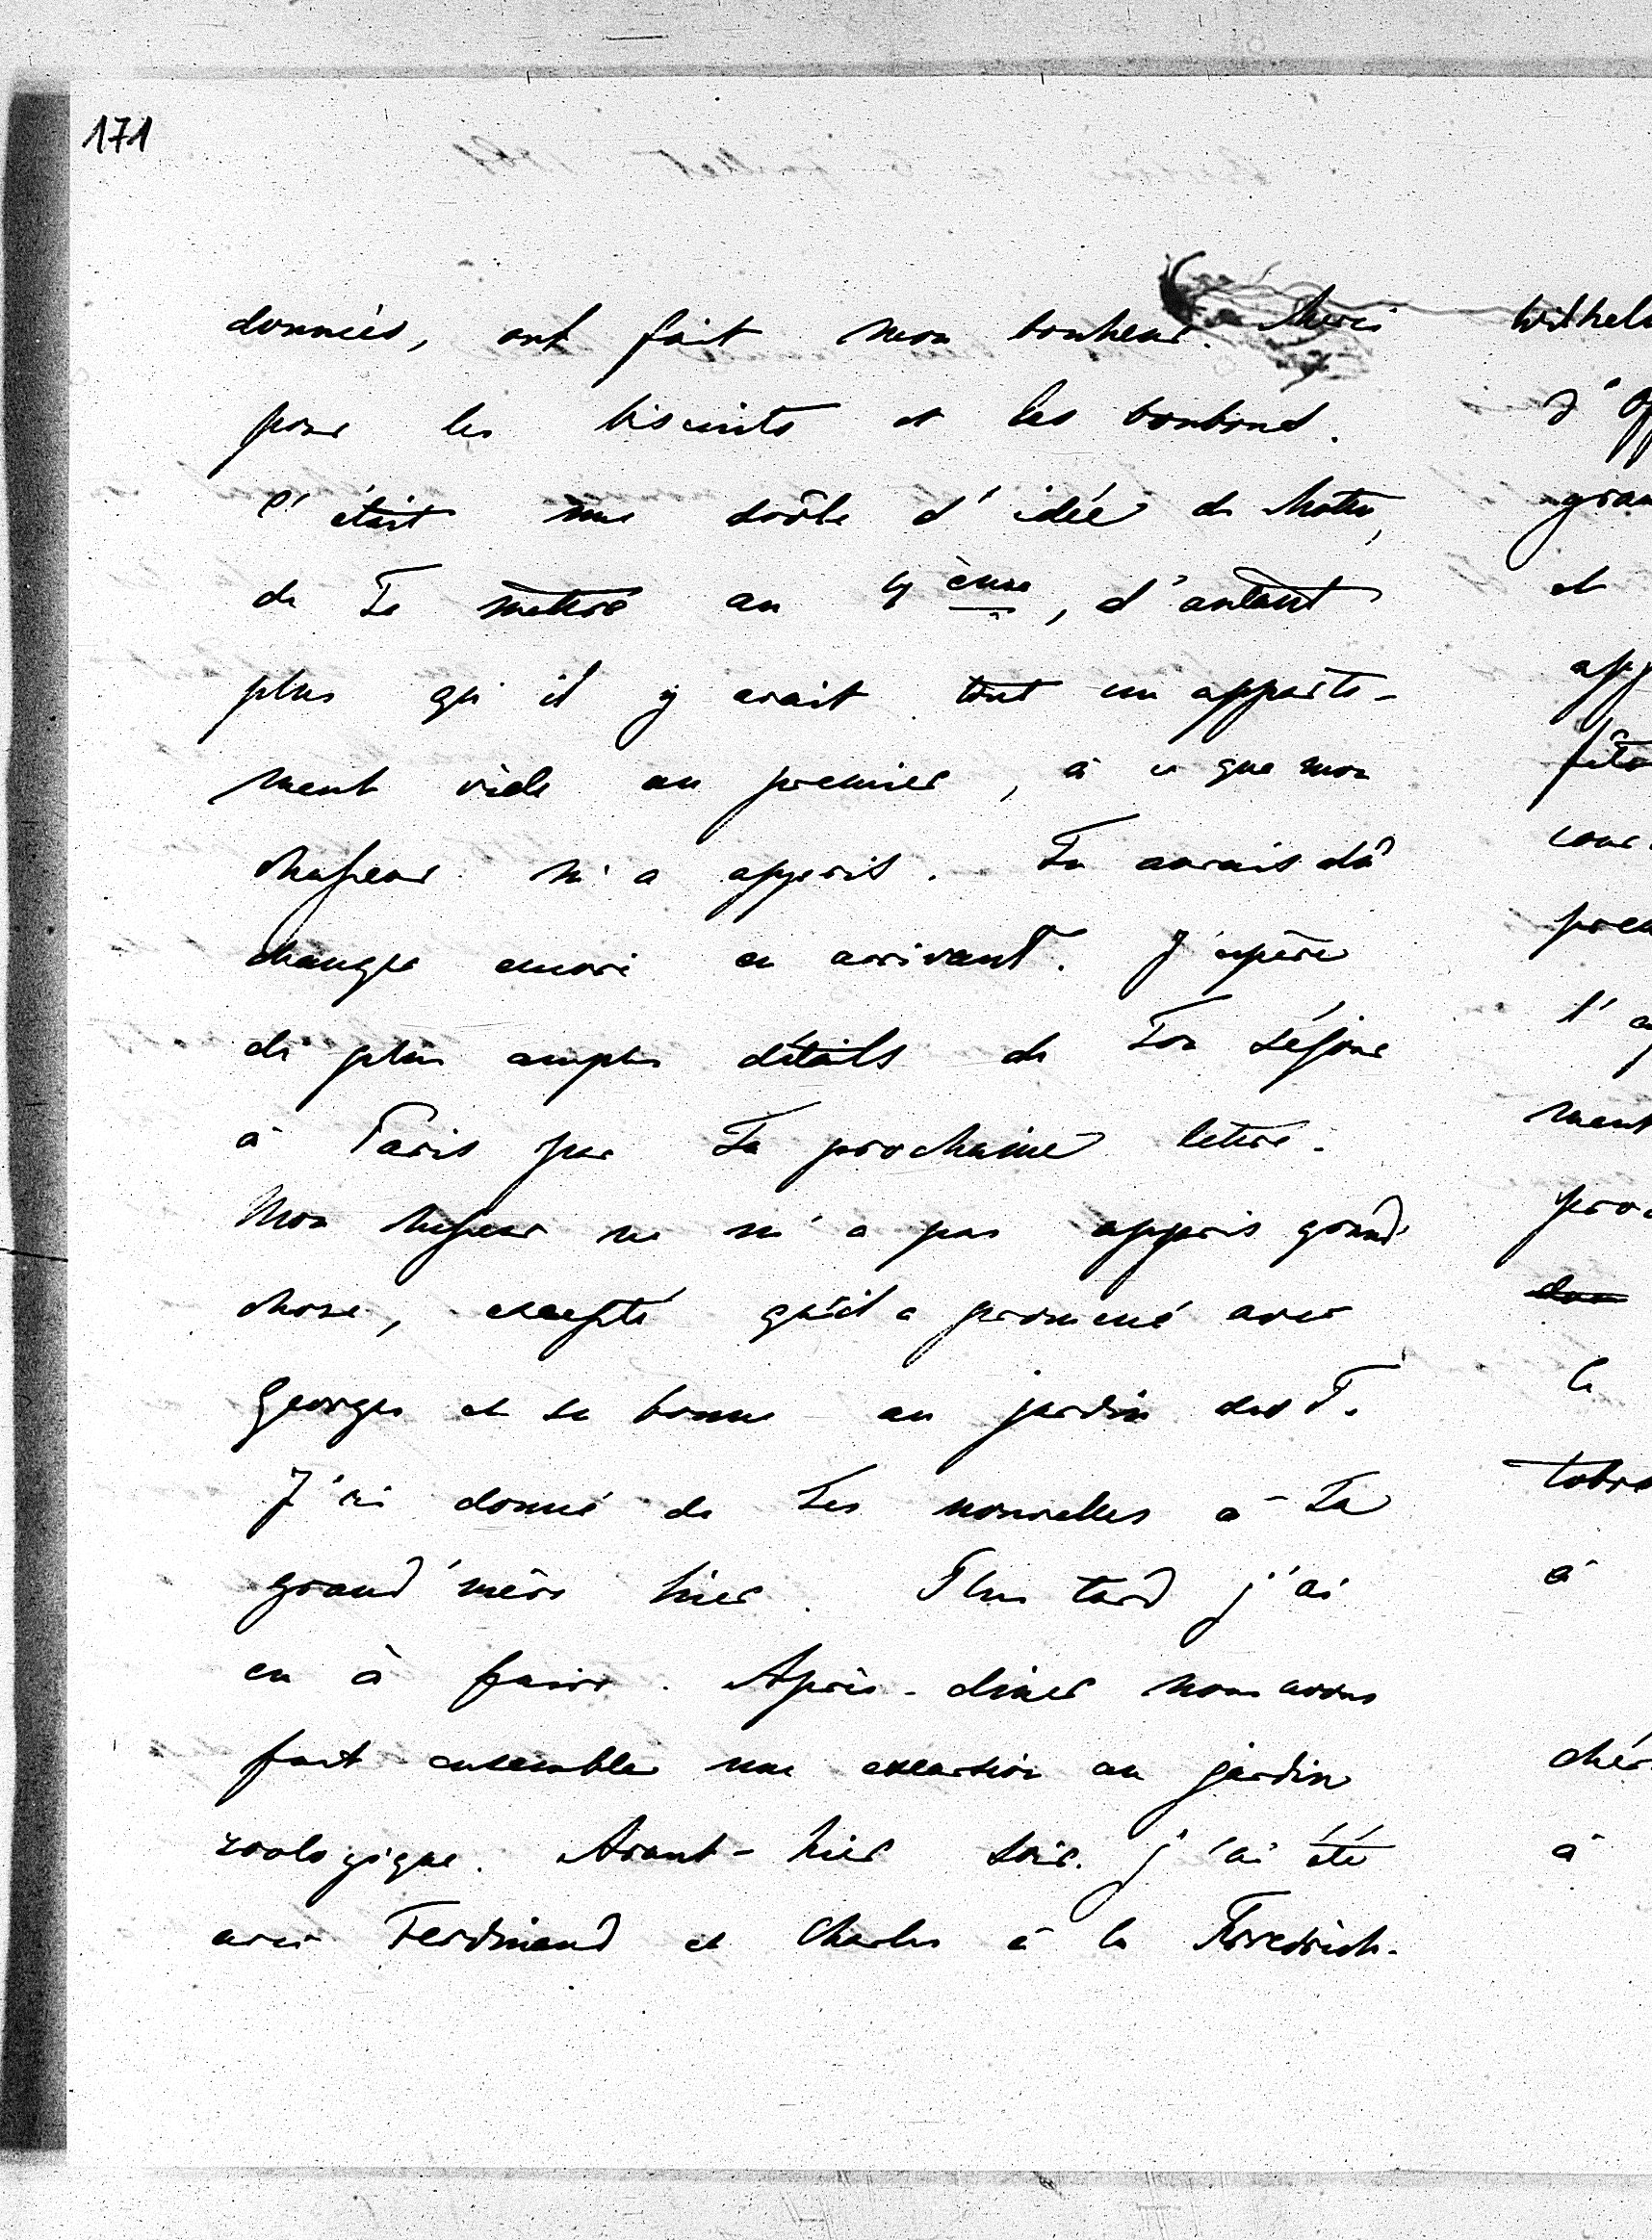 171
données, ont fait mon bonheur. Merci
pour les biscuits et les bonbons.
C'était une drôle d'idée de
de Te mettre au 4ème, d'autant
plus qu'il y avait tout un apparte-
ment vide au premier, à ce que mon
chasseur m'a appris. Tu aurais dû
changer encore en arrivant. J'espère
de plus amples détails de Ton séjour
à Paris par Ta prochaine lettre.
Mon chasseur ne m'a pas appris grand
chose, excepté qu'il a promené avec
Georges et sa bonne au jardin des T.
J'ai donné de Tes nouvelles à Ta
grand'mère hier. Plus tard j'ai
eu à faire. Après-dîner nous avons
fait ensemble une excursion au jardin
zoologique. Avant-hier soir j'ai été
avec Ferdinand et Charles à la Friedrich-